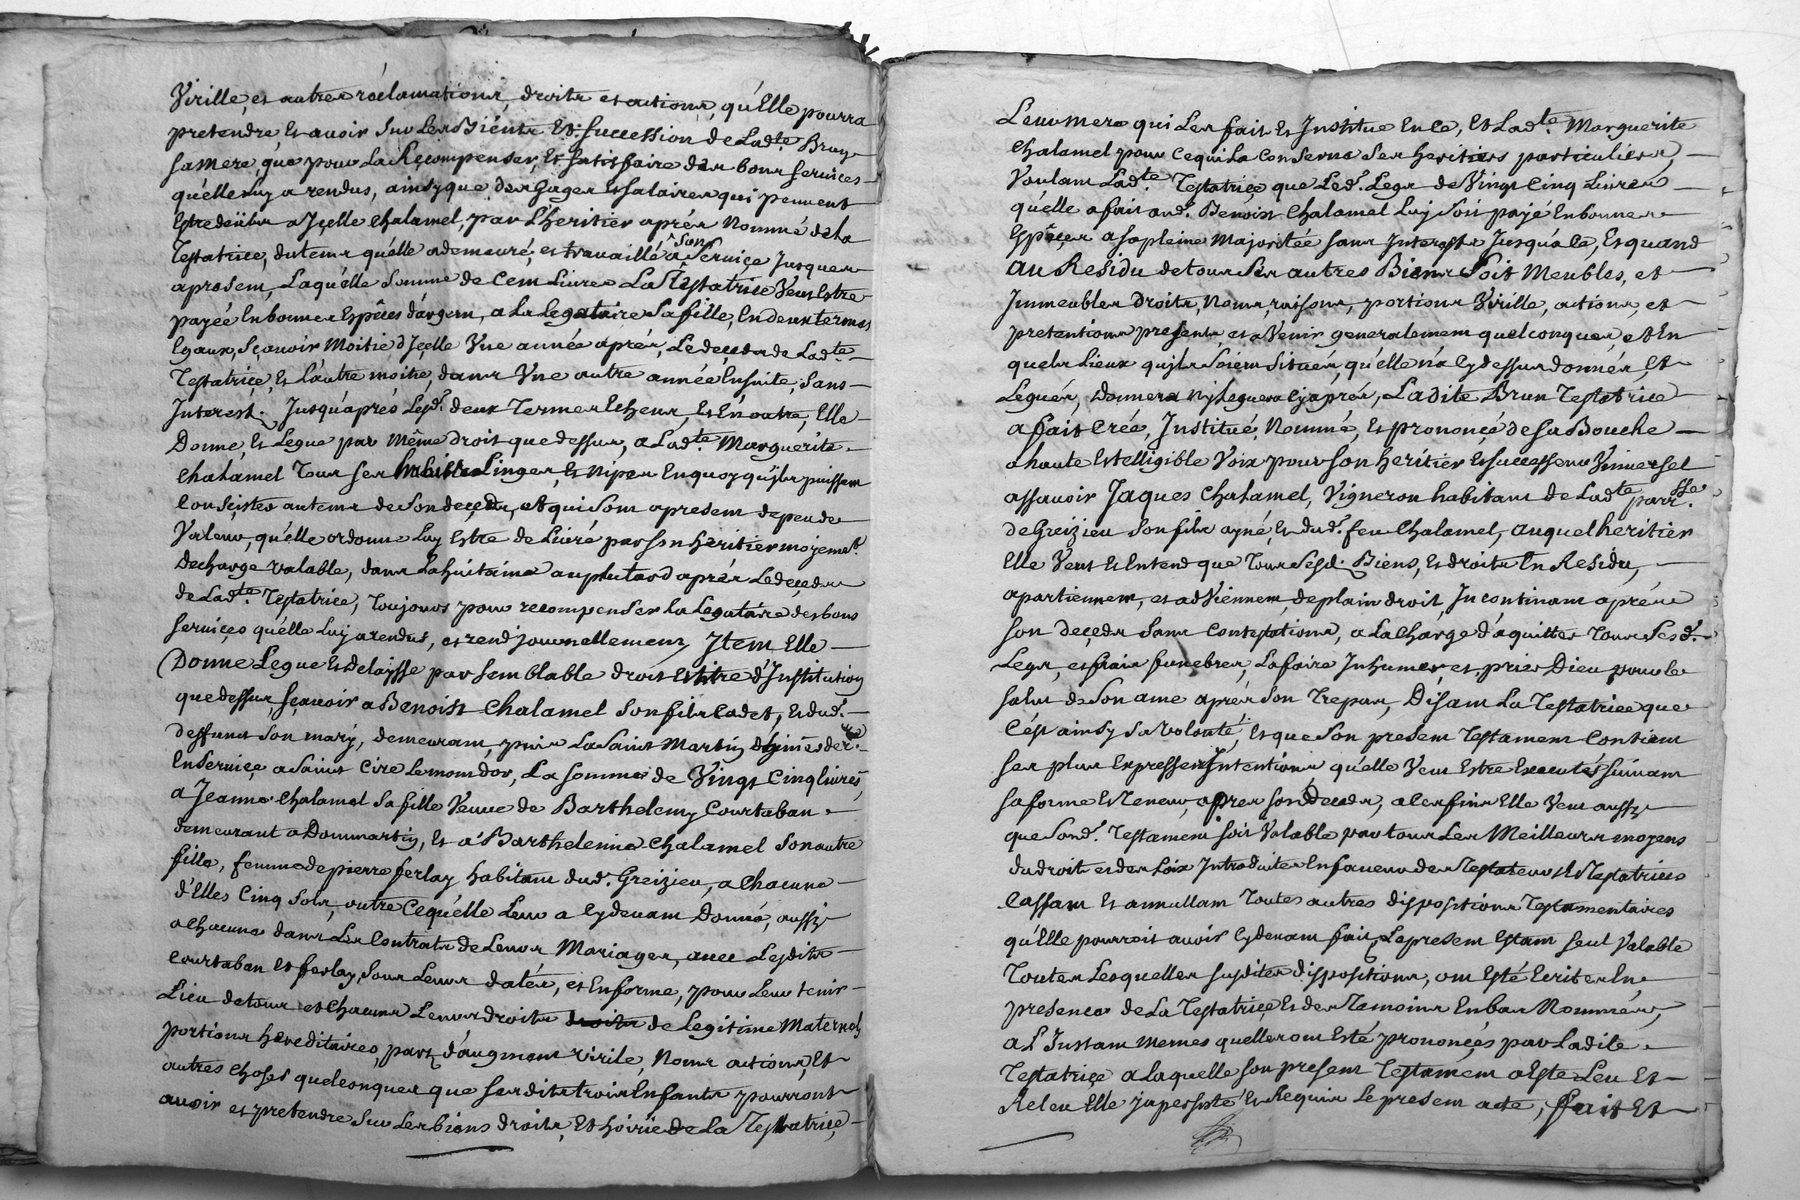 Virille, et autres réclamations, droits et actions, qu'Elle pourra
pretendre Et avoir Sur Les Biénts Et succession de Lad.te Brun
sa mere, que pour La Recompenser, Et satisfaire des bons services
qu'elle Luy a rendus, ainsy que des Gages Et salaires qui peuvent
Estre deübts a Jçelle Chalamel, par L'heritier aprés Nommé de La
Testatrice, du tems qu'elle a demeuré, et travaillé a son Serviçe Jusques
a presem, Laqu'elle Somme de Cem Livres La Testatrice Veut Estre
payée En bonnes Espêces d'argem, a La Legataire Sa fille, En deux termes
Egaux, Sçavoir Moitié d'Jçelle Vne année aprés, Le deçeds de Lad.te
Testatriçe, Et L'autre moitié, dans Vne autre année Ensuite, Sans
Interest. Jusqu'aprés Lesd. deux Termes Echeus, Et En outre, Elle
Donne, Et Legue par Même droit que dessus, a Lad.te Marguerite
Chalamel Tous ses habits Linges, Et Nipes En quoy qu'jls puissem
Consçister au tems de Son deçeds, et qui Som a presem de peu de
Valeur, qu'elle ordonne Luy Estre de Livré par son heritier moyenn.t
Decharge valable, dans La huitaine au plus tard aprés Le deçeds
de Lad.te Testatrice, Toujours pour recompenser La Legataire des bons
services qu'elle Luy a rendus, et rend journellement, Jtem Elle
Donne Legue Et Delaysse par semblable droit Et titre d'Institution
que dessus, sçavoir a Benoist Chalamel Son fils Cadet, Et dud.
deffunct Son mary, demeuram, puis La Saint Martin der.
En Serviçe a Saint Cire Le mondor, La somme de Vingt Cinq Livres,
a Jeanne Chalamel Sa fille Veuve de Barthelemy Courtaban
demeurant a Dommartin, Et a Barthelemie Chalamel Son autre
fille, femme de pierre ferlay habitam dud. Greizieu, a Chacune
d'Elles Cinq Sols, outre Ce qu'elle Leur a Cy devam Donné, aussy
a Chacune dans Les Contrats de Leurs Mariages, avec Lesdits
Courtaban Et ferlay, Sous Leurs datés, et En forme, pour Leur tenir
Lieu de tous et Chacuns Leurs droits droits de Legitime Maternels
portions hereditaires, part d'augment virile, Noms actions, Et
autres Choses quelconques que Sesdits trois Enfants pourront
avoir et pretendre Sur Les biens droits, Et hoirie de La Testatriçe
Leur mere qui Les fait Et Institue En Ce, Et Lad.te Marguerite
Chalamel pour Ce qui La Conserne Ses heritiers particuliers,
Voulam Lad.te Testatriçe que Led. Legs de Vingt Cinq Livres
qu'elle a fait aud. Benoist Chalamel Luy Soit payé En bonnes
Espêçes a Sa pleine Majoritée sans Interests Jusqu'a Ce, Et quand
Au Residu de tous Ses autres Biens Soit Meubles, et
Jmmeubles Droits, Noms, raisons, portions Virille, actions, et
pretentions presents, et a Venir generalemem quelconques, et En
quels Lieux qu'jls Soiem Situés, qu'elle n'a Cy dessus donnés, Et
Legués, donnera Ny Leguera Cy aprés, Ladite Brun Testatrice
a fait Créé, Institué, Nommé, Et prononçé de sa Bouche
a haute Et elligible Voix pour Son heritier Et successeur Vniversel
assavoir Jaques Chalamel, Vigneron habitam de Lad.te parr.sse
de Greizieu Son fils ayné, Et dud. feu Chalamel, auquel heritier
Elle Veut Et Entend que Tous Sesd. Biens, Et droits En Residu,
apartiennem, et adViennem, de plain droit Jncontinam aprés
son deçeds Sans Contestations, a La Charge d'aquitter Tous Sesd.
Legs, et frais funebres, La faire Inhumer et prier Dieu pour le
salut de Son ame aprés Son Trepas, Disam La Testatrice que
C'est ainsy Sa Volonté, Et que Son presem Testamem Contiem
ses plus Expresses Intentions qu'elle Veut Estre Executés suivam
sa forme Et Teneur, apres son Deceds, a Ces fins Elle Veut aussy
que Sond. Testamem soit Valable par tous Les Meilleurs moyens
du droit et des Loix Introduites En faveur des Testateurs Et Testatrices
Cassam Et annullam Toutes autres dispositions Testamentaires
qu'Elle pourroit avoir Cy devam fait, Le presem Estam seul Valable
Toutes Lesquelles susdites dispositions, om Esté Ecrites En
presence de La Testatrice Et des Temoins En bas Nommés,
a L'Instam memes quelles om Esté prononçées par Ladite
Testatriçe a Laquelle son presem Testamem a Este Leu Et
Releu Elle y a persisté Et Requis Le presem acte, fait Et